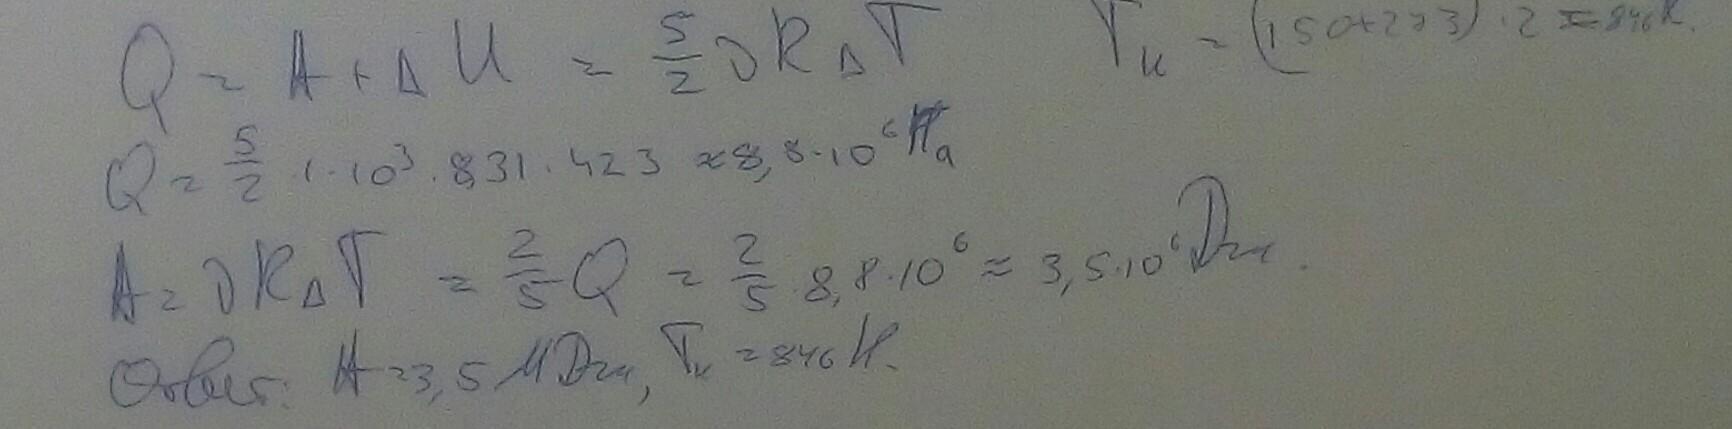 Q = A + ΔU = 5/2 νRΔT   Tк = (150+273)·2 = 846К.
Q = 5/2 · 1·10³ · 8,31 · 423 ≈ 8,8·10⁶ Па
A = νRΔT = 2/5 Q = 2/5 · 8,8·10⁶ ≈ 3,5·10⁶ Дж.
Ответ: A = 3,5 МДж, Tк = 846 К.